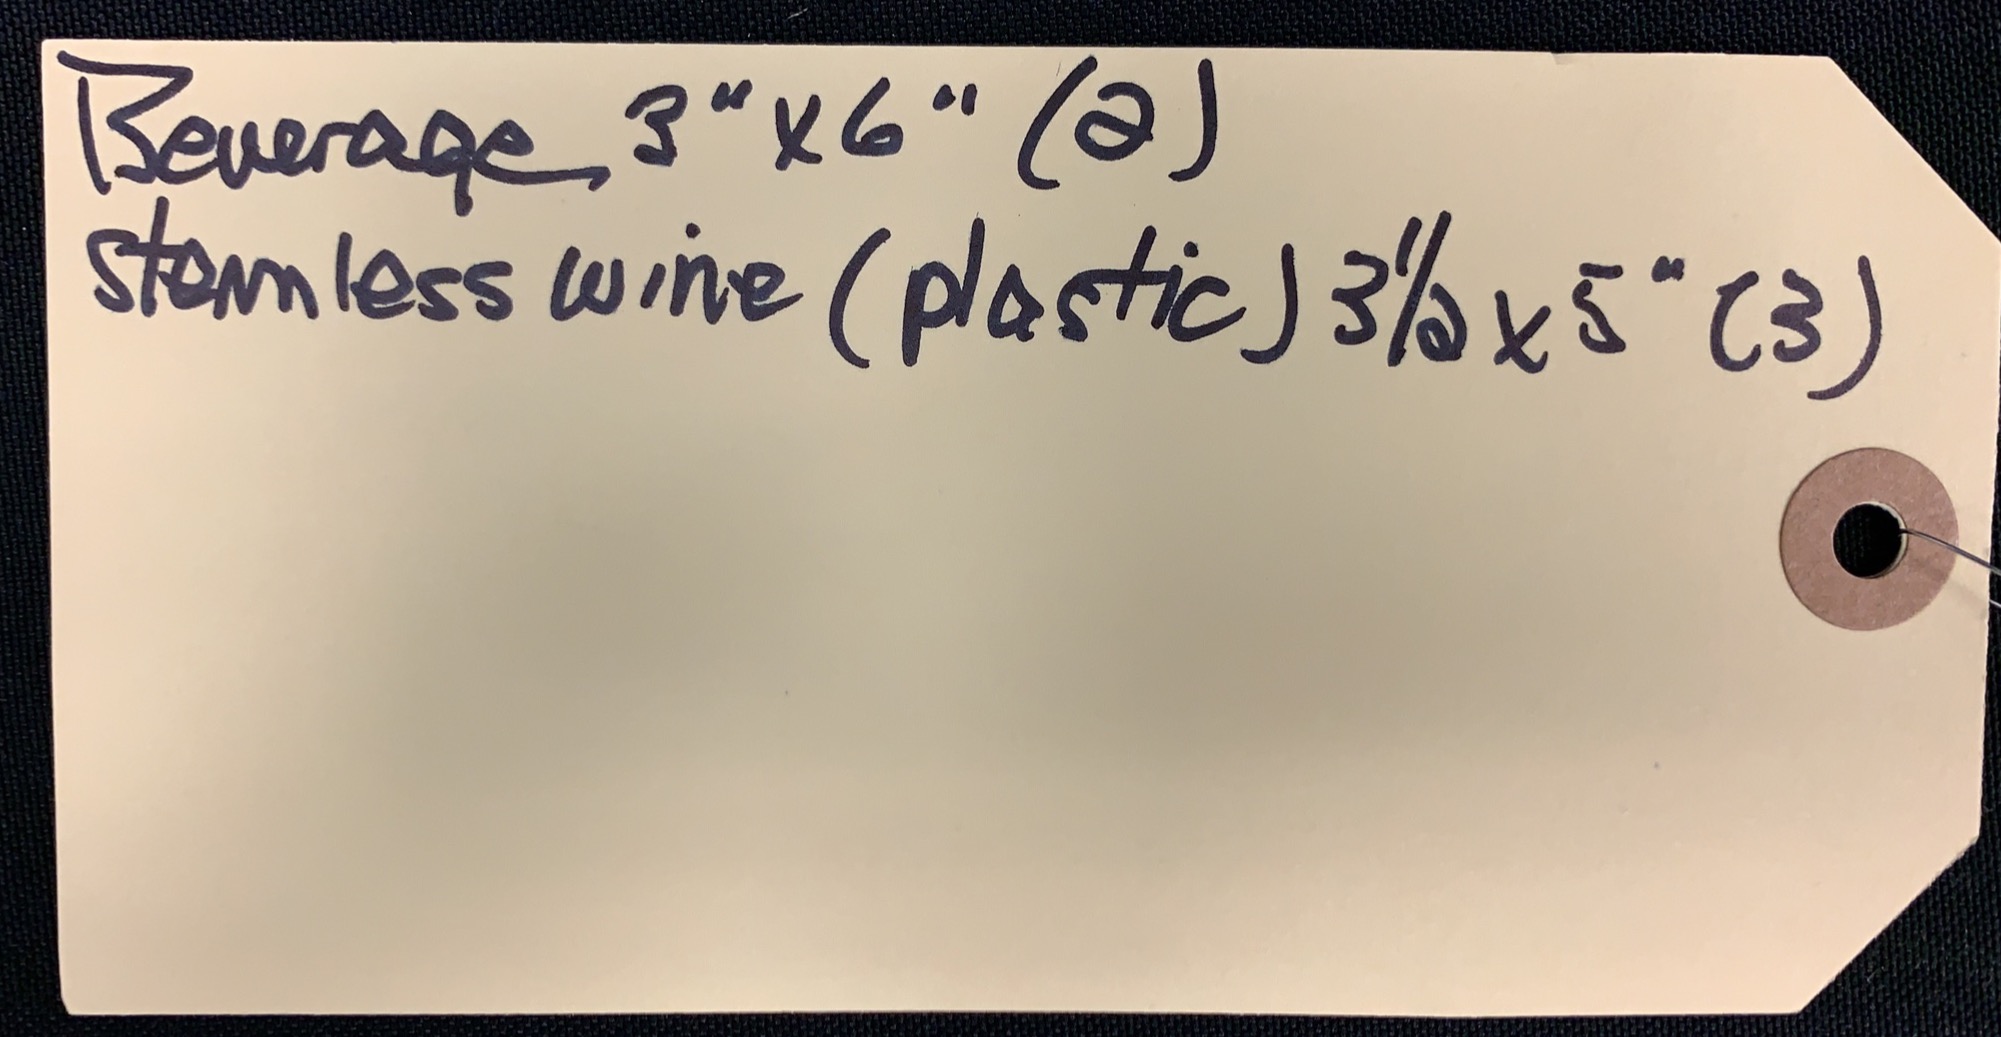 Beverage, 3" x 6" (2)
stemless wine (plastic) 3 1/2 x 5" (3)